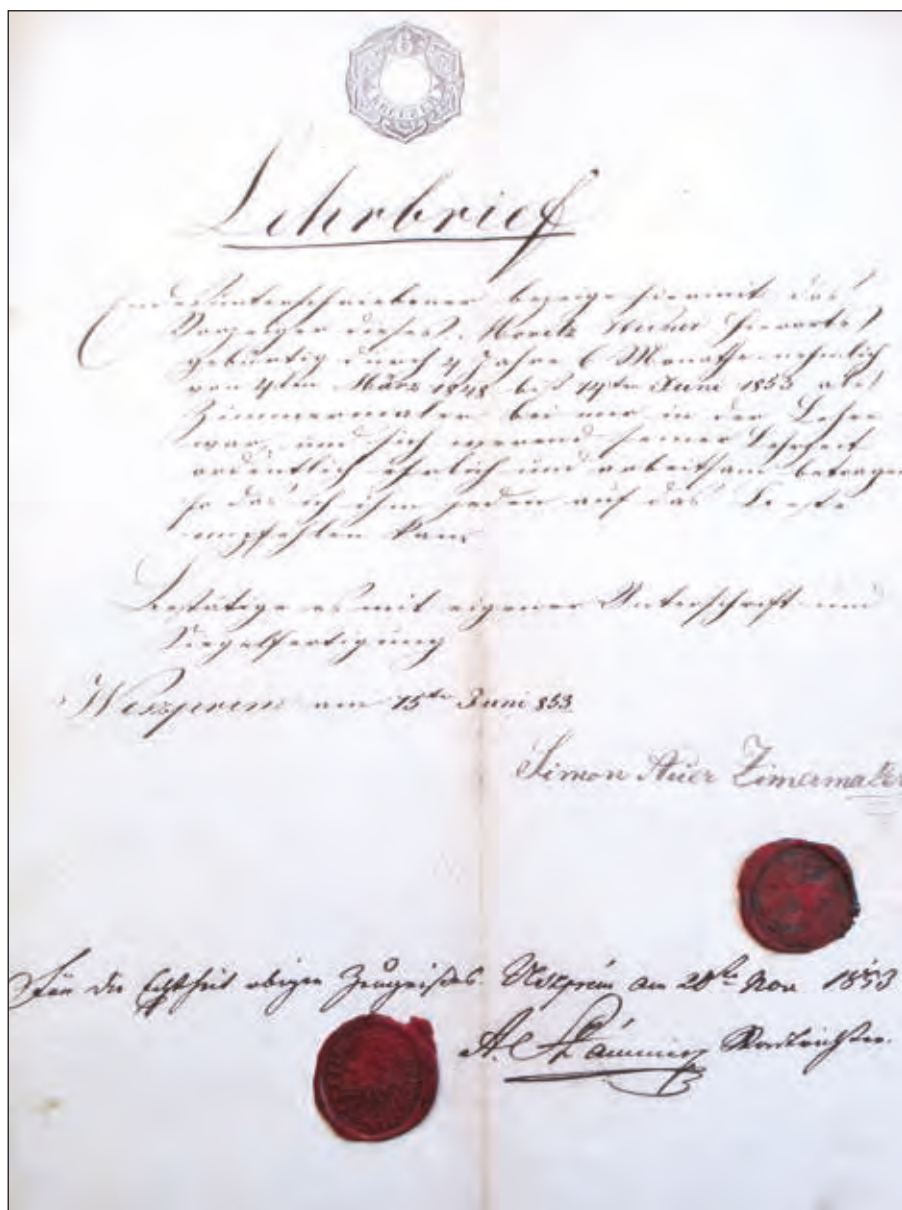 KREUZER
Lehrbrief
Endesunterschriebener bezeige hiermit das
Vorzeiger dieses Moritz hierorts
gebürtig durch 4 Jahre 6 Monathe nehmlich
von 4ten März 1848 bis 14ten Juni 1853 als
Zimmermaler bei mir in der Lehre
war, und sich werend seiner Lehrzeit
ordentlich ehrlich und arbeitsam betragen
so das ich ihm jeden auf das Beste
empfehlen kann
Bestätige es mit eigener Unterschrift und
Siegelfertigung
Weszprem am 15te Juni 853
Simon Auer Zimermaler
Für die Echtheit obigen Zeugnißes Veszprim am 28te Nov 1853
A.